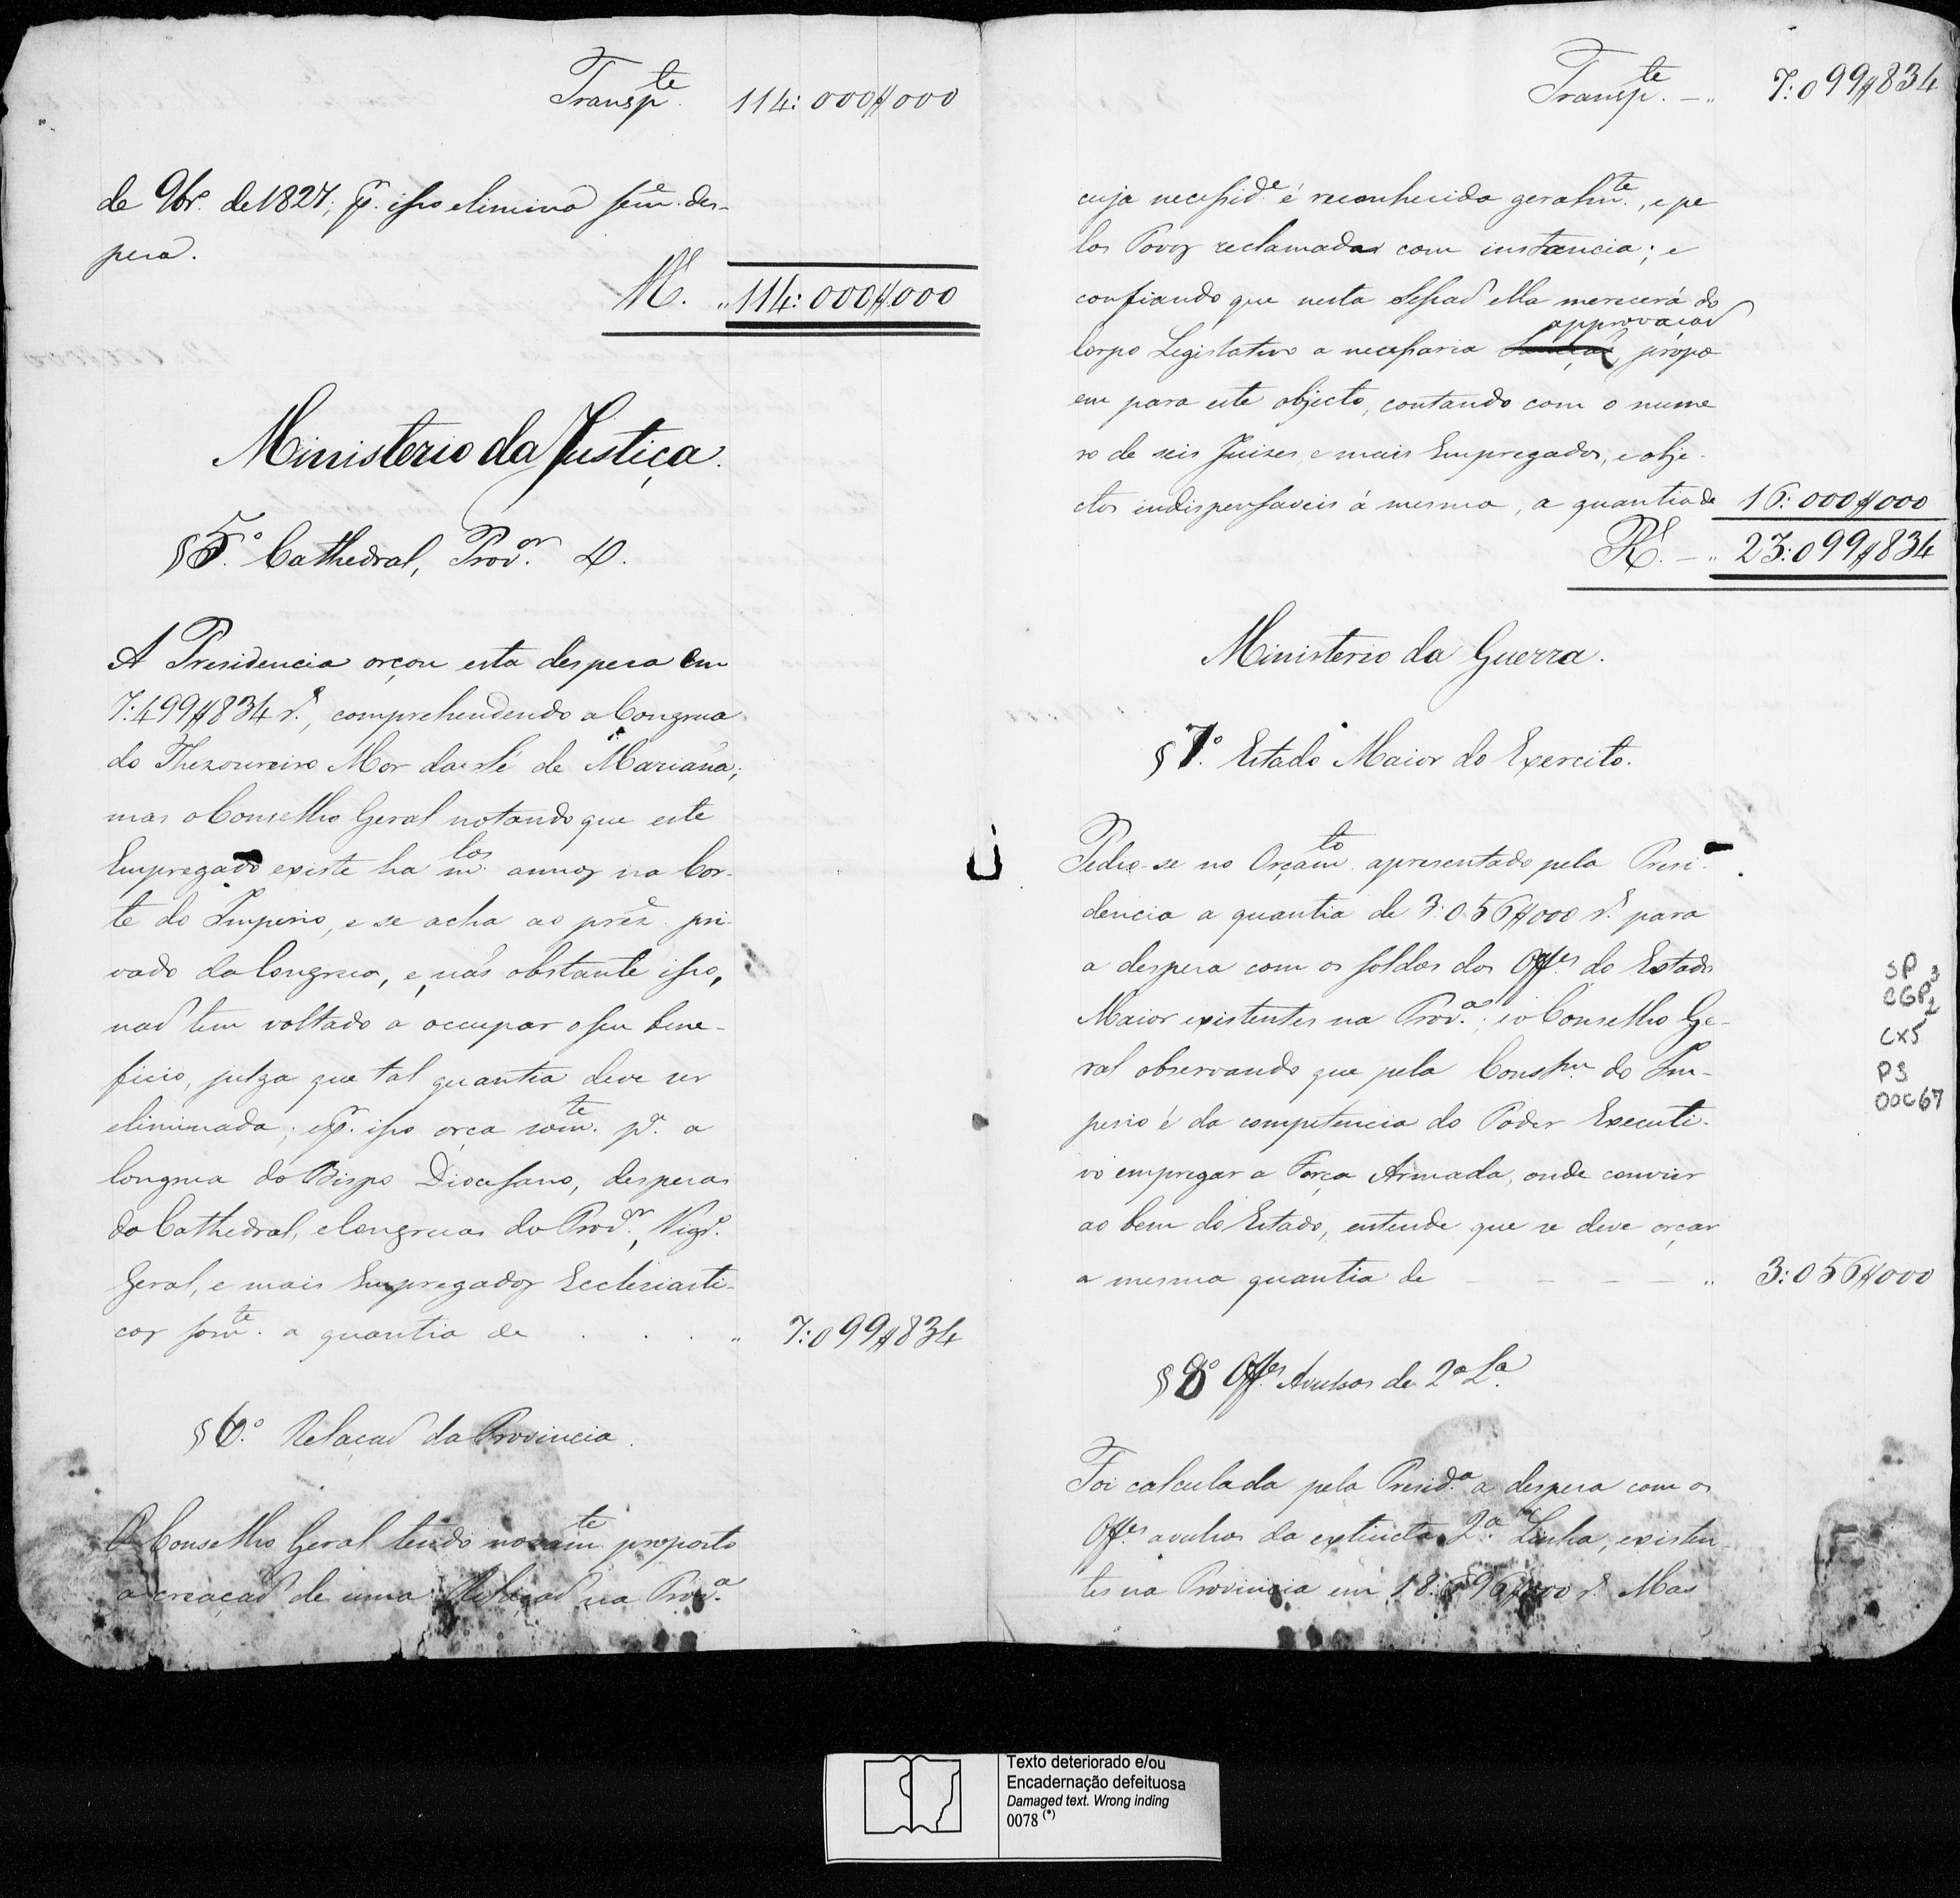 Transp.te 114:000$000
de 9br.o de 1827; p.r isso elimina sem.e des-
peza.
R.s „ 114:000$000
Ministerio da Justiça.
§5.º Cathedral, Prov.or &.
A Presidencia orçou esta despeza em
7:499$834 r.s, comprehendendo a Congrua
do Thezoureiro Mor da Sé de Mariana;
mas o Conselho Geral notando que este
Empregado existe ha m.tos annos na Cor-
te do Imperio, e se acha ao prez.e pri-
vado da Congrua, e, naõ obstante isso,
naõ tem voltado a occupar o seu bene-
ficio, julga que tal quantia deve ser
eliminada; e p.r isso orça som.te p.a a
Congrua do Bispo Diocesano, despezas
da Cathedral, e Congruas do Prov.or, Vigr.o
Geral, e mais Empregados Ecclesiasti-
cos som.te a quantia de . . . „ 7:099$834
§6.º Relaçaõ da Provincia.
O Conselho Geral tendo novam.te proposto
a creaçaõ de uma Relaçaõ na Prov.a
Transp.te — „ 7:099$834
cuja necessid.e é reconhecida geralm.te, e pe
los Povos reclamada com instancia; e
confiando que nesta Sessaõ ella merecerá do
approvaçaõ
Corpo Legislativo a necessaria Sancçaõ, propo
em para este objecto, contando com o nume
ro de seis Juizes, e mais Empregados, e obje-
ctos indispensaveis á mesma, a quantia de 16:000$000
R.s — „ 23:099$834
Ministerio da Guerra.
§7.º Estado Maior do Exercito.
Pedio-se no Orçam.to apresentado pela Presi-
dencia a quantia de 3:056$000 r.s para
a despeza com os soldos dos Off.es do Estado
Maior existentes na Prov.a; e o Conselho Ge-
ral observando que pela Constm. do Im-
perio é da competencia do Poder Executi-
vo empregar a Força Armada, onde convier
ao bem do Estado, entende que se deve orçar
a mesma quantia de — — — — „ 3:056$000
§8º Off.es Avulsos de 2ª L.a
Foi calculada pela Presid.a a despeza com os
Off.es avulsos da extincta 2.ª Linha, existen
tes na Provincia em r.s Mas
SP
CGP3
2
CX5
P3
DOC67
Texto deteriorado e/ou
Encadernação defeituosa
Damaged text. Wrong inding
0078 (*)